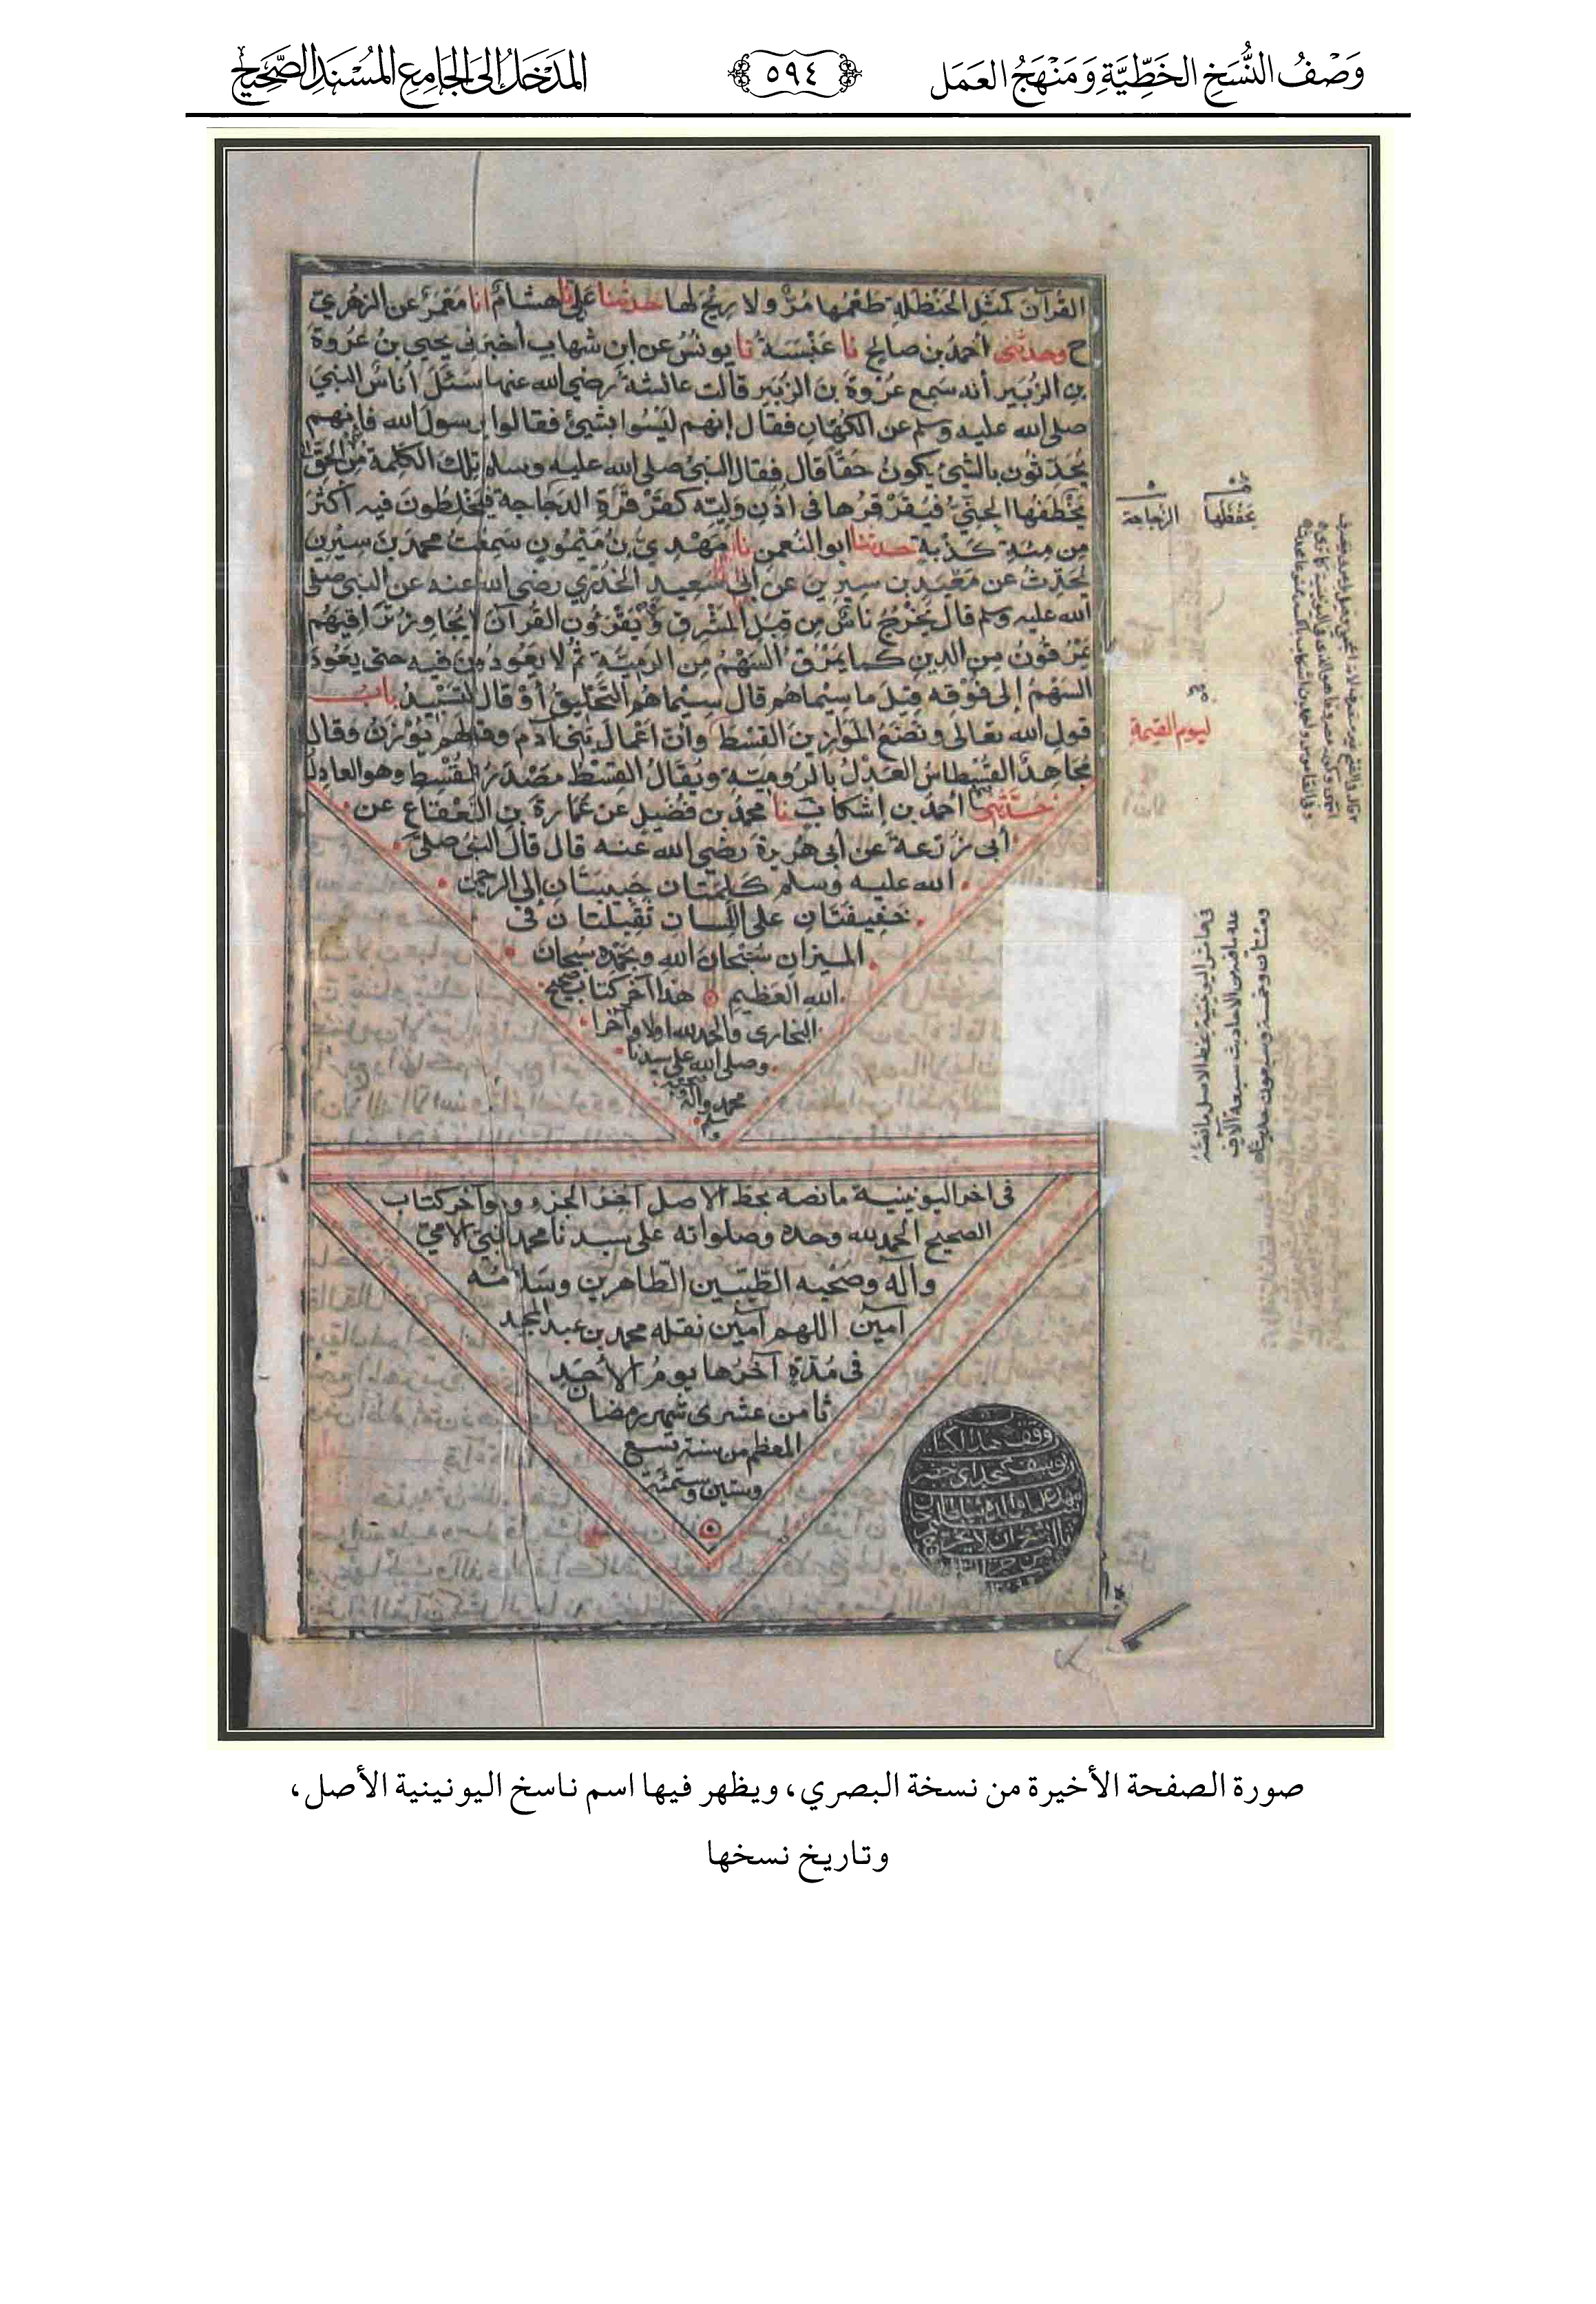 وَصْفُ النُّسَخِ الخَطِّيَّةِ وَمَنْهَجُ العَمَل
٥٩٤
المَدْخَلُ إلى الجَامِعِ المُسْنَدِ الصَّحِيح
القرآن كمثل الحنظلة طعمها مر ولا ريح لها حدثنا علي نا هشام انا معمر عن الزهري
ح وحدثني أحمد بن صالح نا عنبسة نا يونس عن ابن شهاب أخبرني يحيى بن عروة
بن الزبير أنه سمع عروة بن الزبير قالت عائشة رضي الله عنها سئل أناس النبي
صلى الله عليه وسلم عن الكهان فقال إنهم ليسوا بشيئ فقالوا يرسول الله فإنهم
يحدثون بالشيئ يكون حقا قال فقال النبي صلى الله عليه وسلم تلك الكلمة من الحق
يخطفها الجني فيقرقرها في أذن وليه كقرقرة الدجاجة فيخلطون فيه أكثر
من مئة كذبة حدثنا ابو النعمن نا مهدي بن ميمون سمعت محمد بن سيرين
يحدث عن معبد بن سيرين عن أبي سعيد الخدري رضي الله عنه عن النبي صلى
الله عليه وسلم قال يخرج ناس من قبل المشرق ويقرؤن القرآن لايجاوز تراقيهم
يمرقون من الدين كما يمرق السهم من الرمية ثم لا يعودون فيه حتى يعود
السهم إلى فوقه قيل ما سيماهم قال سيماهم التحليق أو قال التسبيد باب
قول الله تعالى ونضع الموازين القسط وأن أعمال بني آدم وقولهم يوزن وقال
مجاهد القسطاس العدل بالرومية ويقال القسط مصدر المقسط وهو العادل
حدثني أحمد بن إشكاب نا محمد بن فضيل عن عمارة بن القعقاع عن
أبي زرعة عن أبي هريرة رضي الله عنه قال قال النبي صلى
الله عليه وسلم كلمتان حبيبتان إلى الرحمن
خفيفتان على اللسان ثقيلتان في
الميزان سبحان الله وبحمده سبحان
الله العظيم هذا آخر كتاب صحيح
البخارى والحمد لله اولا وآخرا
وصلى الله على سيدنا
محمد وآله
يخفظها الزجاجة
ليوم القيمة
في هامش اليونينية بخط الاصل ما نصه
عدة ما فيه من الاحاديث سبعة آلاف
ومئتان وخمسة وسبعون حديثا
في اخر اليونينية ما نصه بخط الاصل آخر الجزء وآخر كتاب
الصحيح الحمد لله وحده وصلواته على سيدنا محمد النبي الأمي
وآله وصحبه الطيبين الطاهرين وسلامه
آمين اللهم آمين نقله محمد بن عبد المجيد
في مدة آخرها يوم الأحد
ثامن عشرى شهر رمضان
المعظم من سنة تسع
وستين وستمئة
صورة الصفحة الأخيرة من نسخة البصري، ويظهر فيها اسم ناسخ اليونينية الأصل،
وتاريخ نسخها